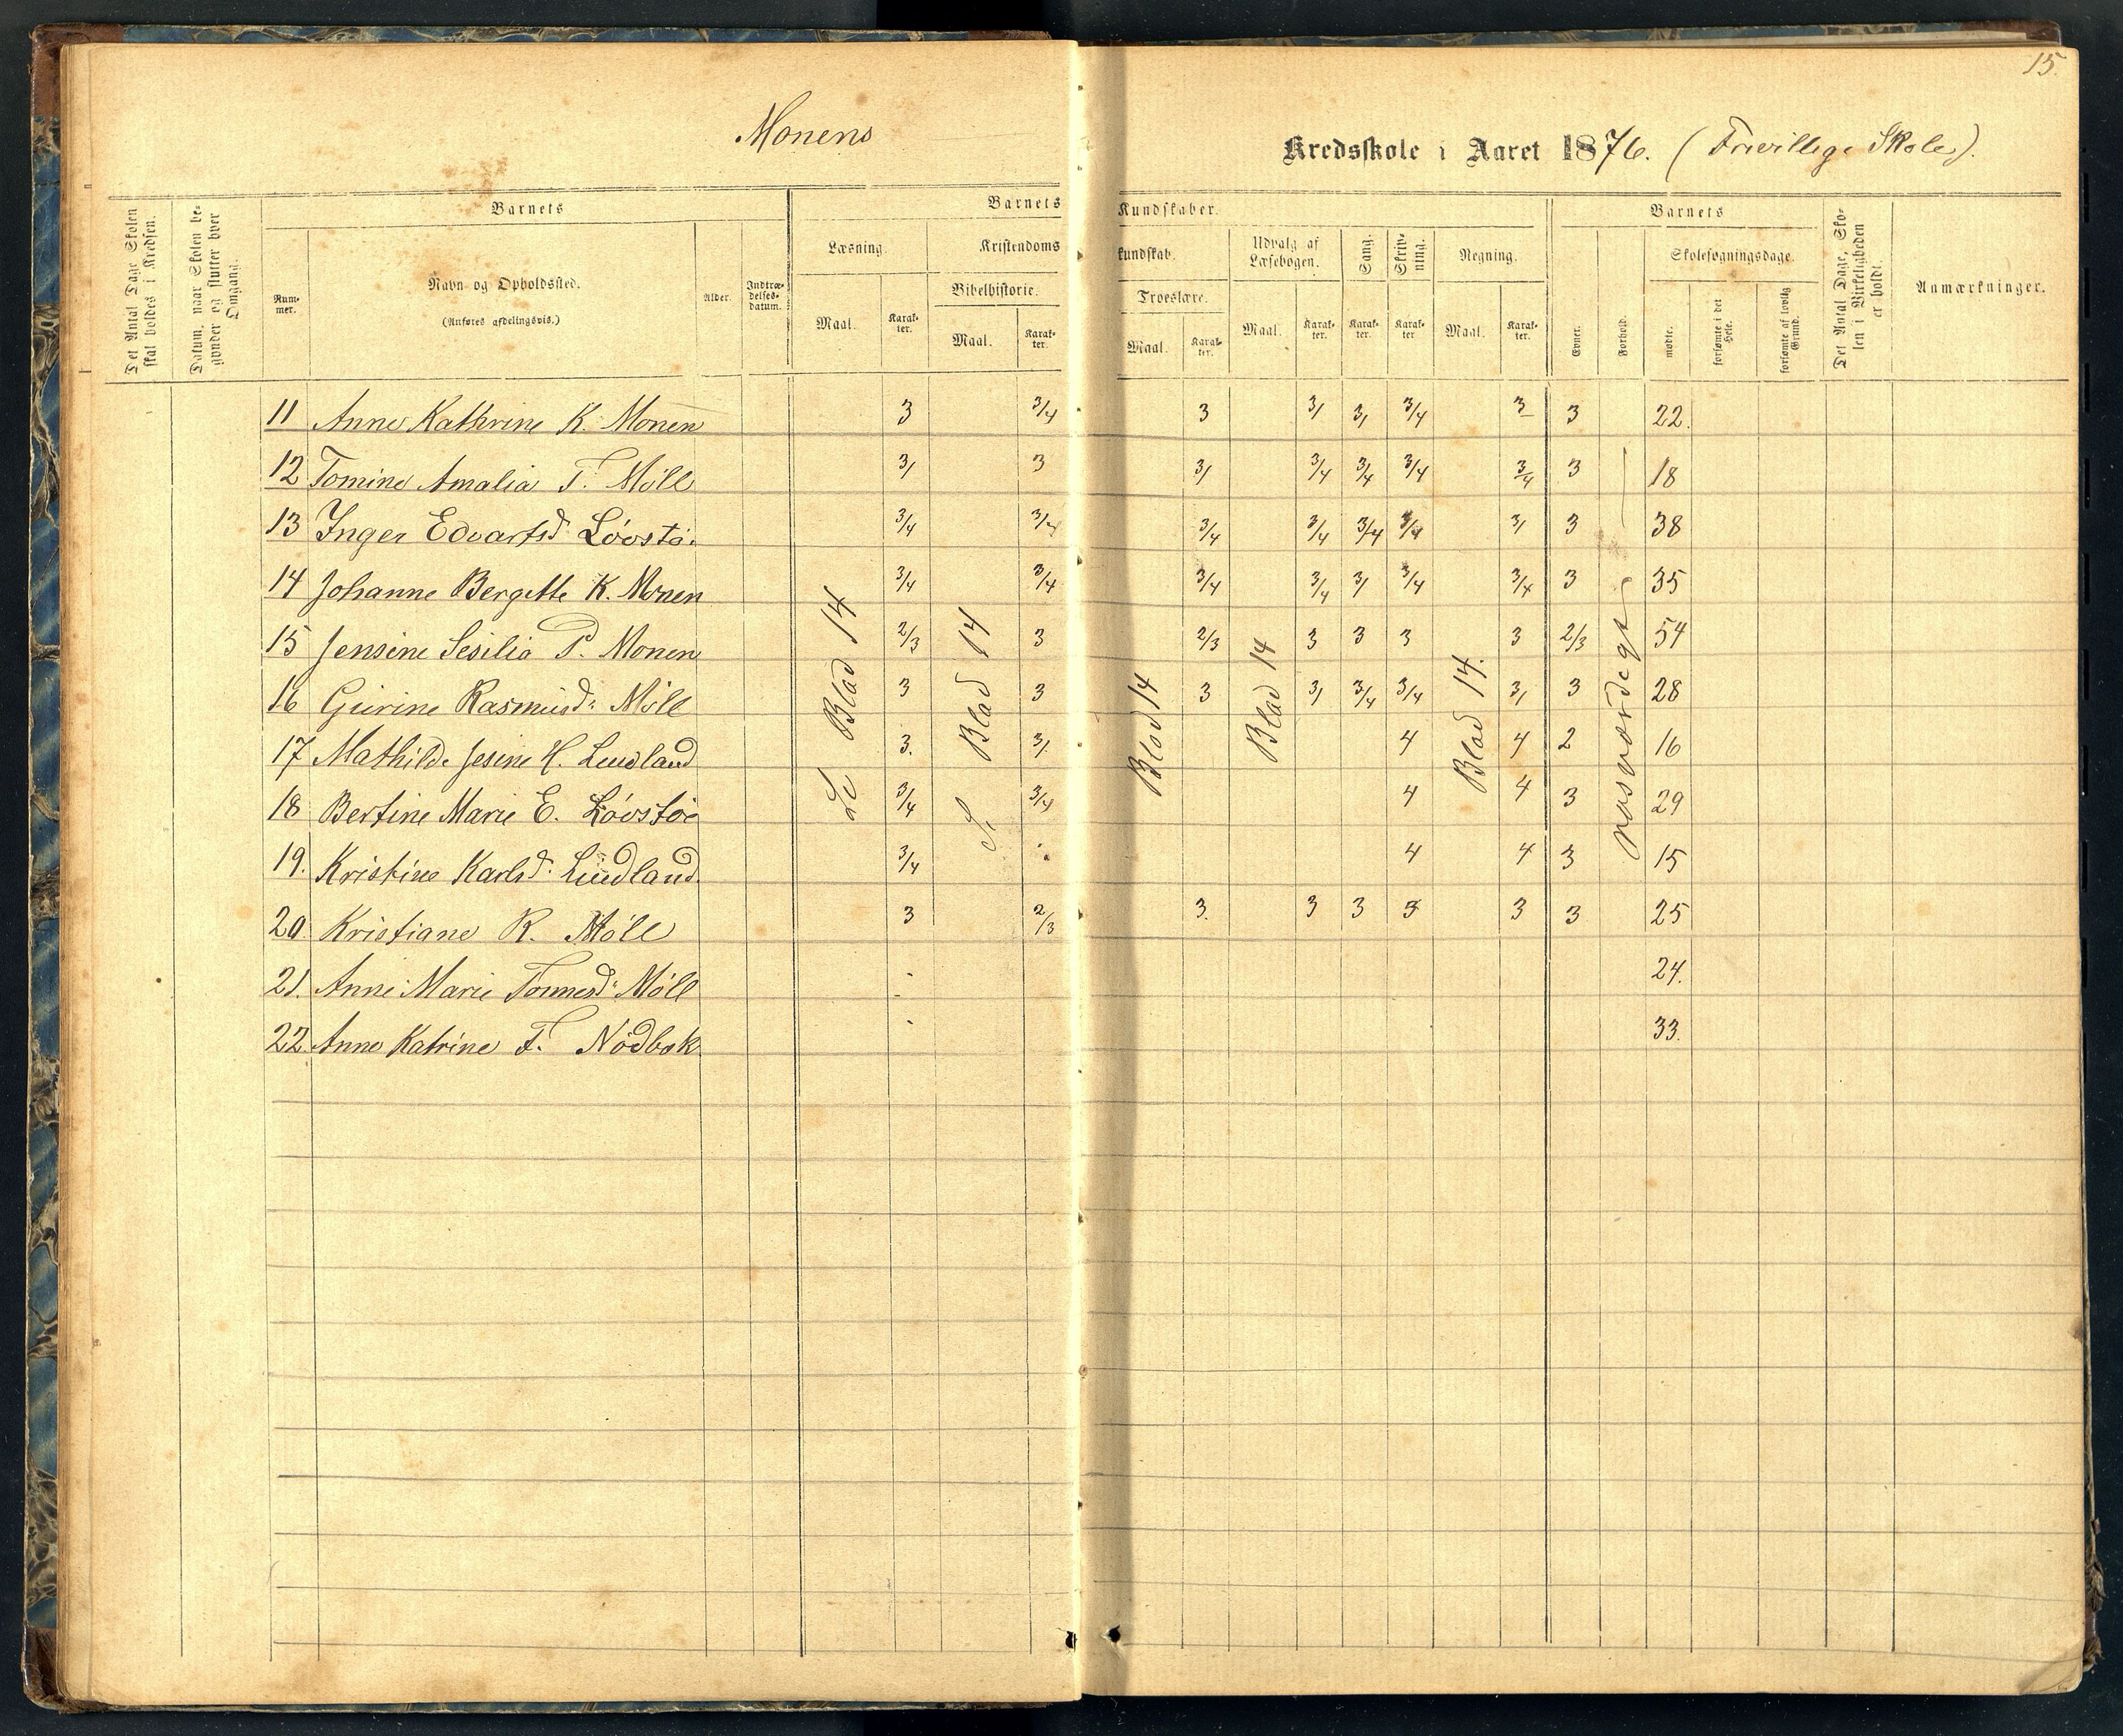 15.
Monens
Kredsskole i Aaret 1876. (Frivillige Skole).
Det Antal Dage Skolen skal holdes i Kredsen.
Datum, naar Skolen begynder og slutter hver Omgang.
Barnets
Nummer.
Navn og Opholdssted.
(Anføres afdelingsvis.)
Alder.
Indtrædelsesdatum.
Barnets
Kundskaber.
Læsning.
Maal.
Karakter.
Kristendoms
kundskab.
Bibelhistorie.
Maal.
Karakter.
Troeslære.
Maal.
Karakter.
Udvalg af Læsebogen.
Maal.
Karakter.
Sang.
Karakter.
Skrivning.
Karakter
Regning.
Maal.
Karakter.
Barnets
Evner.
Forhold.
Skolesøgningsdage.
mødte.
forsømte i det Hele.
forsømte af lovlig Grund.
Det Antal Dage, Skolen i Virkeligheden er holdt.
Anmærkninger.
11 Anne Kathrine K. Monen 3 3/4 3 3/ 3/ 3/4 3 3 22.
12 Tomine Amalia T. Möll 3/ 3 3/ 3/4 3/4 3/4 3/4 3 18
13 Inger Edvartsd. Lövstö. 3/4 3/4 3/4 3/4 3/4 3/4 3/ 3 38
14 Johanne Bergitte K. Monen 3/4 3/4 3/4 3/4 3/ 3/4 3/4 3 35
15 Jensine Sesilia P. Monen 2/3 3 2/3 3 3 3 3 2/3 54
16 Gurine Rasmusd. Möll 3 3 3 3/ 3/4 3/4 3/ 3 28
17 Mathilde Jesine H. Lundland 3. 3/. 4 4 2 16
18 Bertine Marie E. Lövstöe 3/4 3/4 4 4 3 29
19. Kristine Karlsd. Lundland. 3/4 4 4 3 15
20. Kristiane R. Möll 3 2/3 3. 3 3 3 3 3 25
21. Anne Marie Tonnesd. Möll 24.
22. Anne Katrine F. Nödbæk. 33.
Se Blad 14
S. Blad 14
Blad 14
Blad 14
Blad 14.
rosværdigt